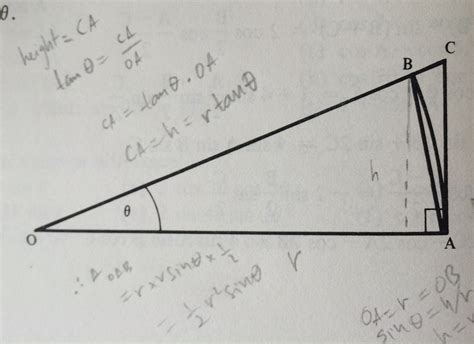 θ.
height = CA
tan θ = CA/OA
CA = tan θ . OA
CA = h = r tan θ
C
B
h
θ
O
A
r
∴ A OAB
= r x r sin θ x 1/2
= 1/2 r² sin θ
OA = r = OB
sin θ = h/r
h =